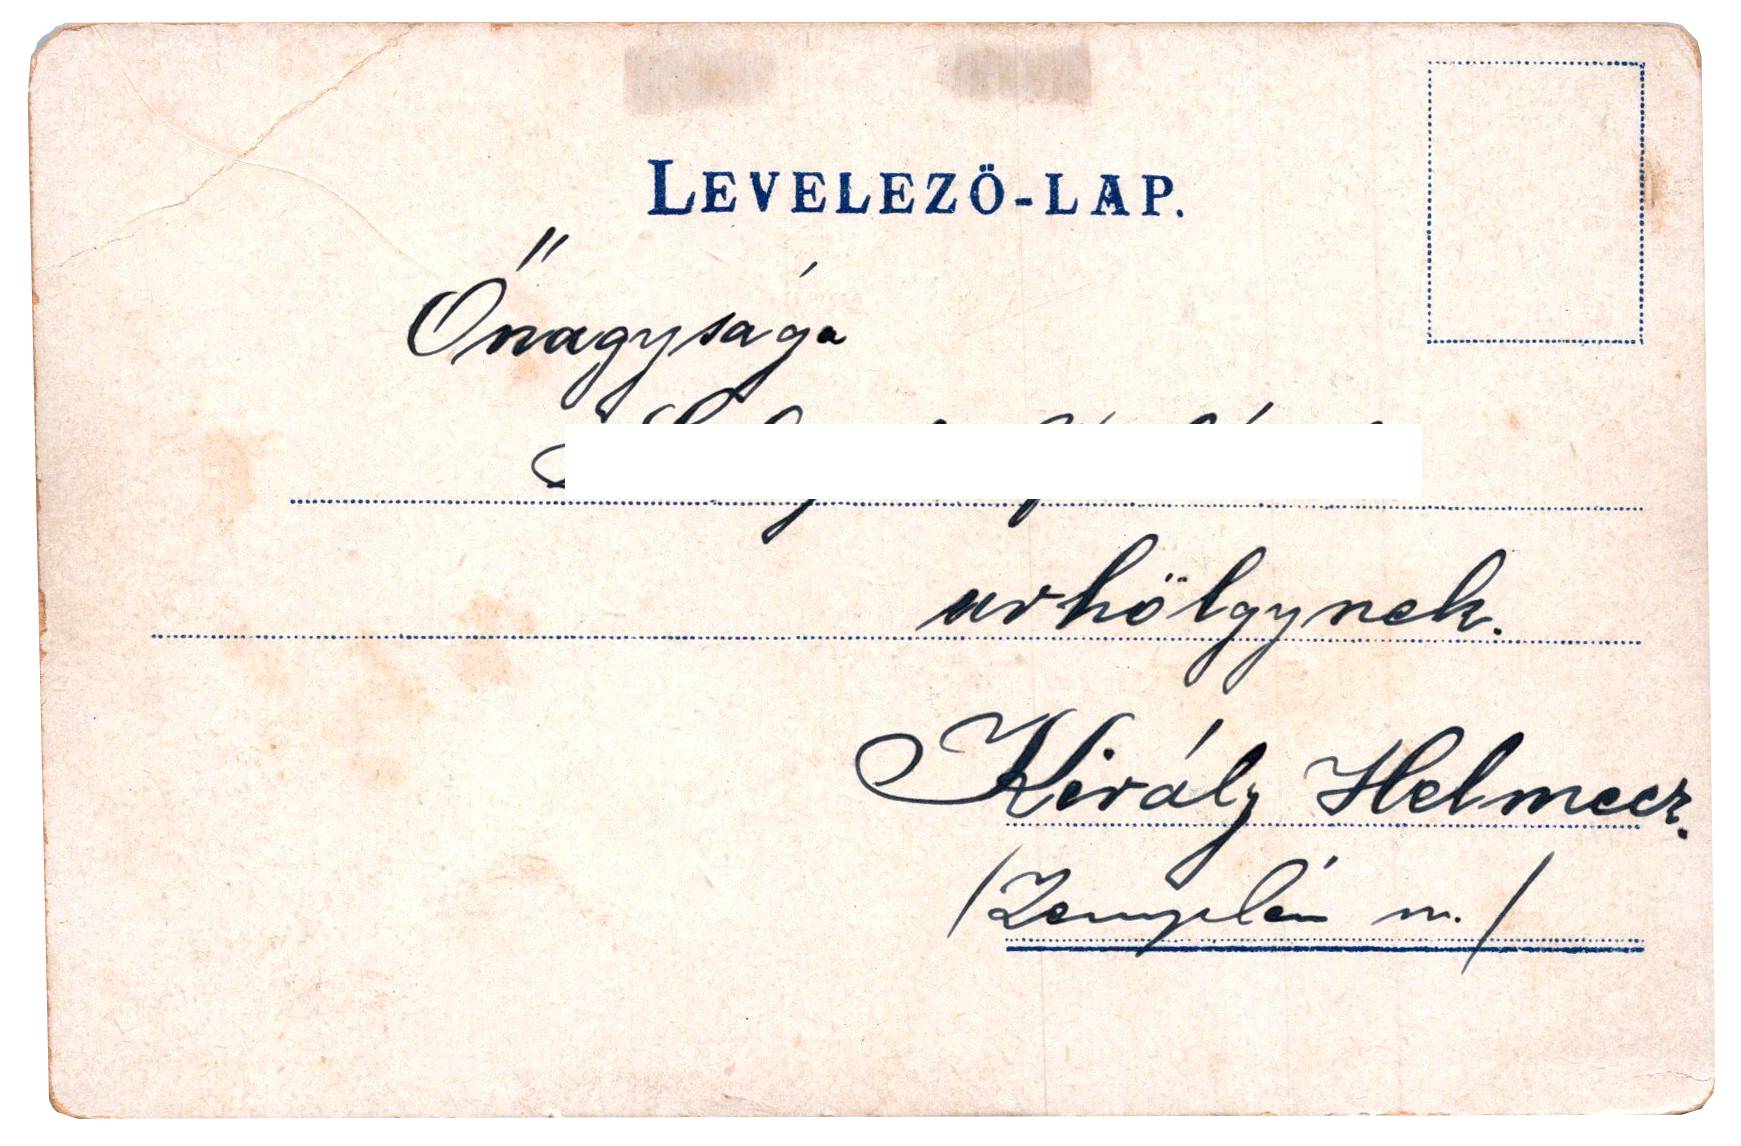 LEVELEZÖ-LAP.
Őnagysága
urhölgynek.
Király Helmecz.
/Zemplén m./